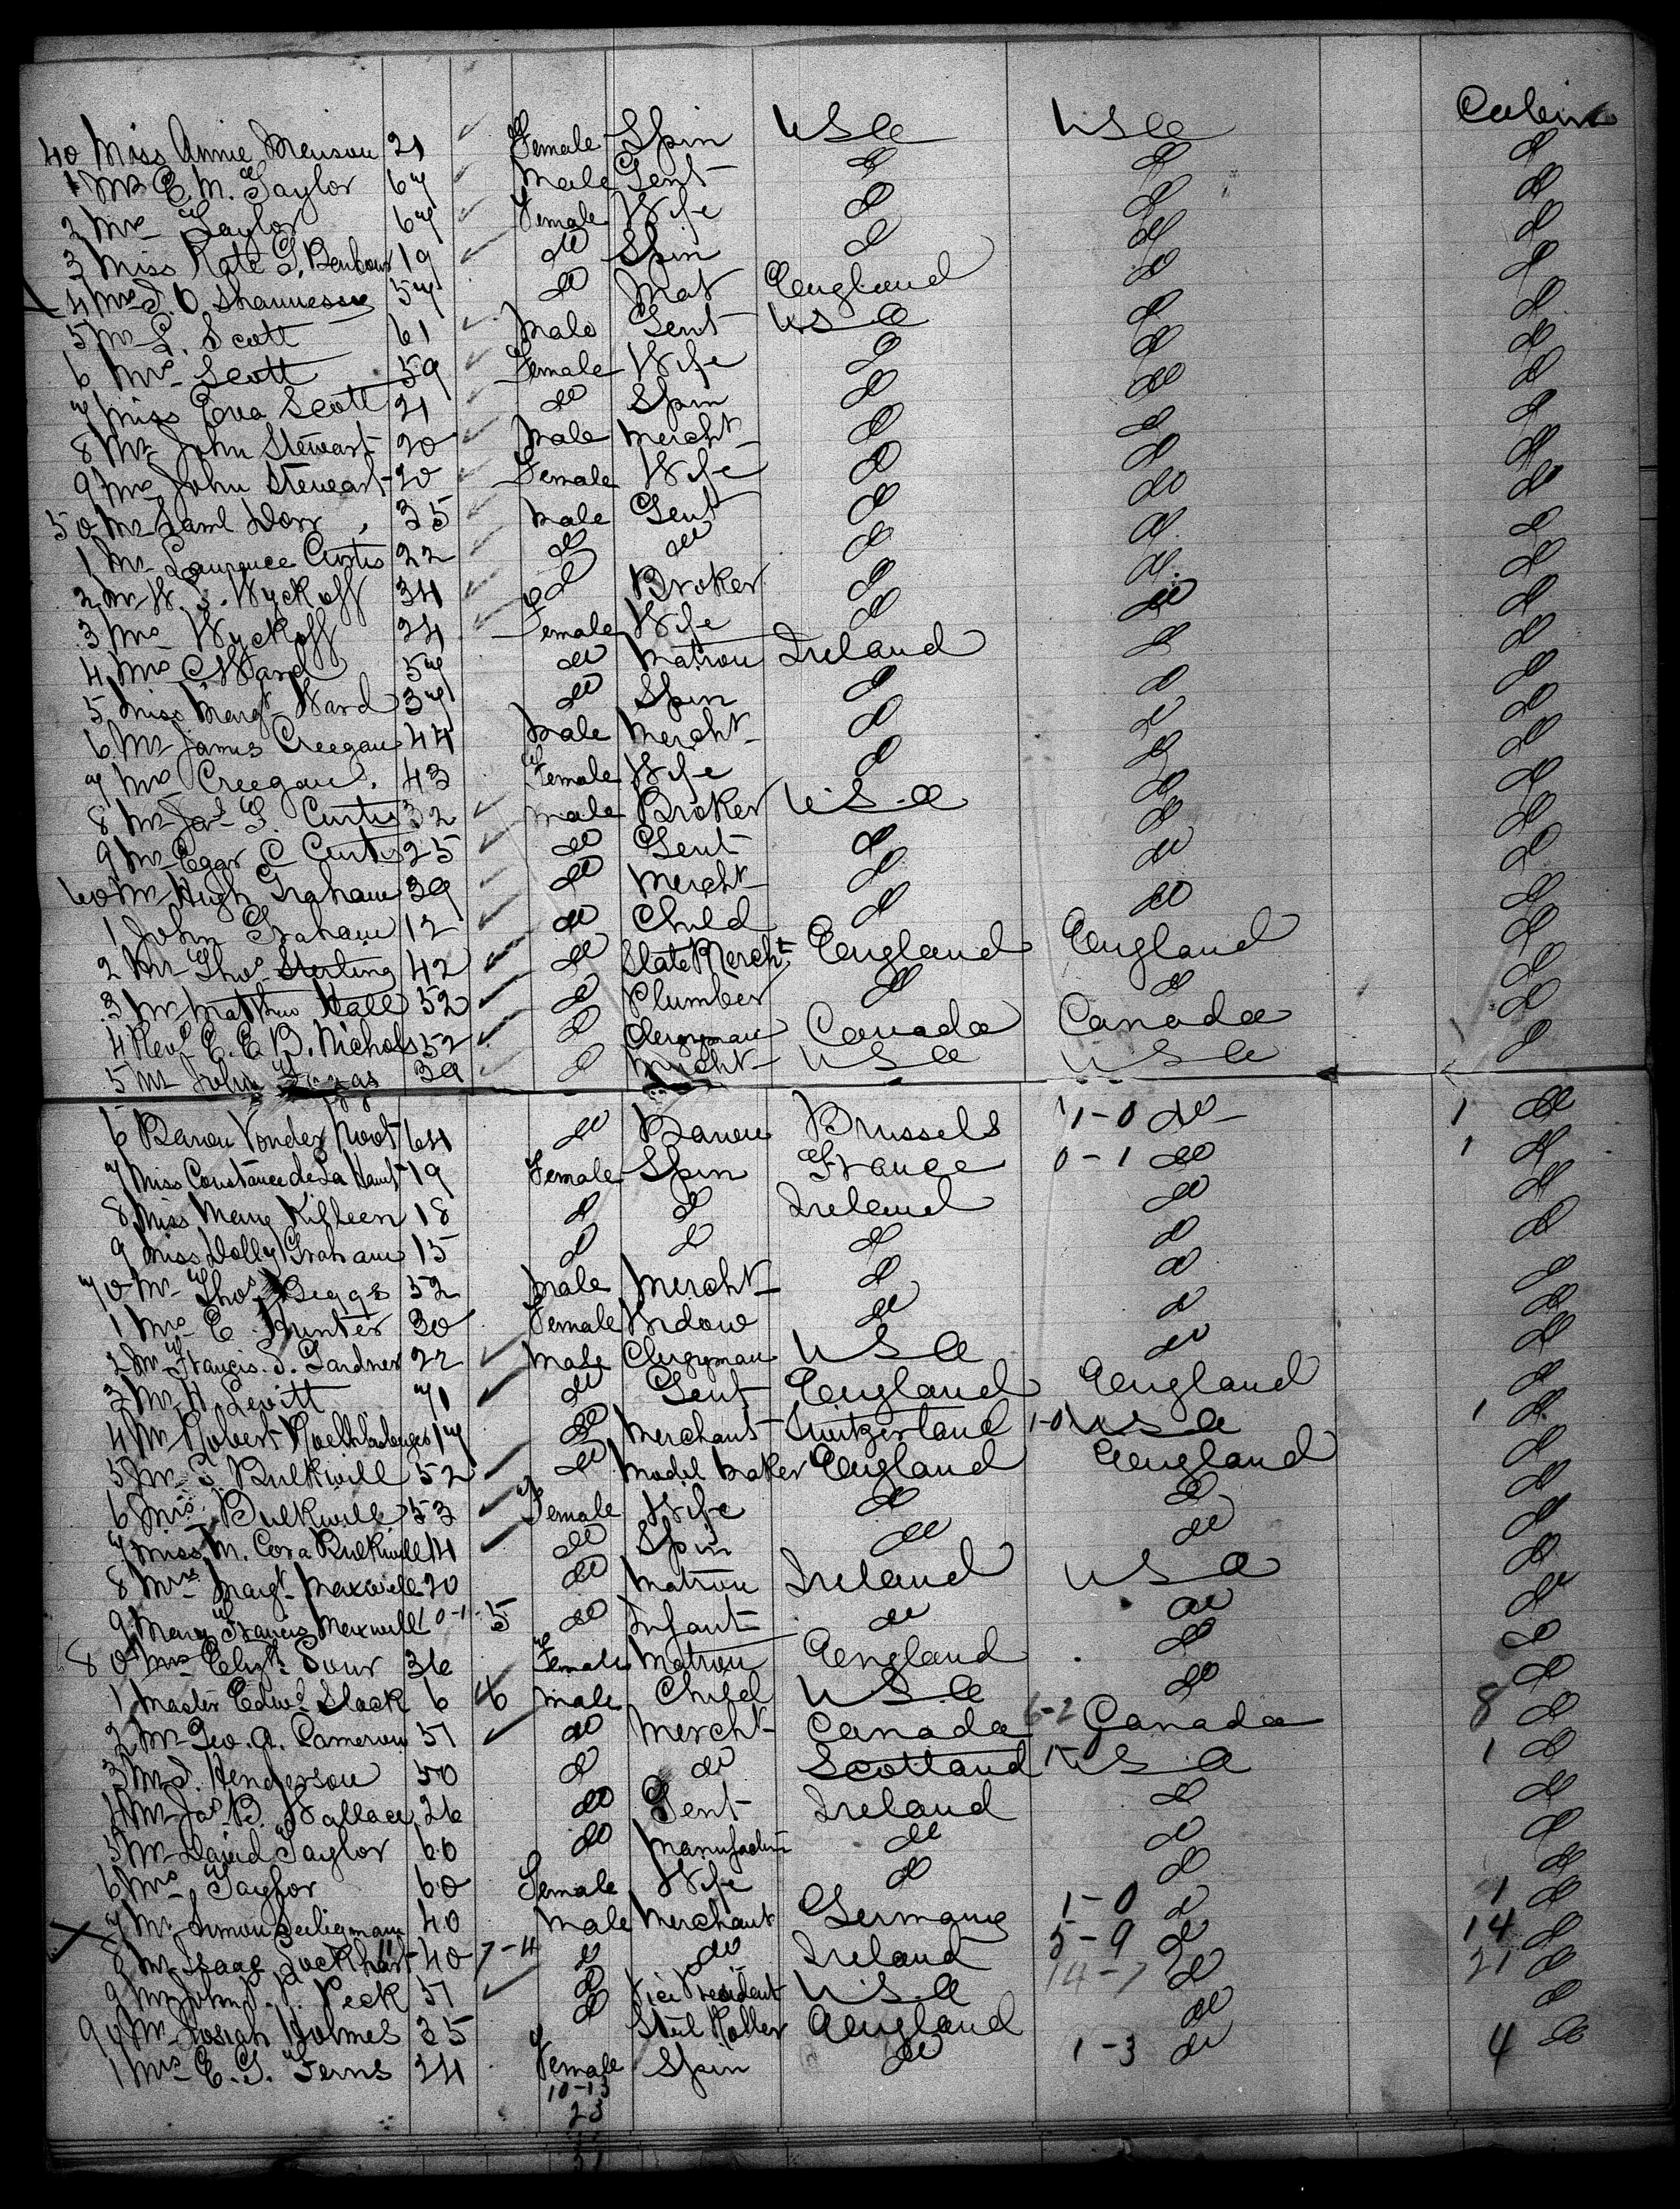 40 Miss Annie Menson 21 Female Spin U S A U S A Cabin
1 Mr E. M. Taylor 67 Male Gent do do do
2 Mrs Taylor 67 Female Wife do do do
3 Miss Kate G. 19 do Spin do do do
4 Mrs J. O Shannessy 57 do Mat England do do
5 Mr L. Scott 61 Male Gent U S A do do
6 Mrs Scott 59 Female Wife do do do
7 Miss Eva Scott 21 do Spin do do do
8 Mr John Stewart 20 Male Mercht do do do
9 Mrs John Stewart 20 Female Wife do do do
50 Mr Saml Dorr 35 Male Gent do do do
1 Mr Laurence Curtis 22 do do do do do
2 Mr W. S. Wyckoff 34 do Broker do do do
3 Mrs Wyckoff 24 Female Wife do do do
4 Mrs C Ward 57 do Matron Ireland do do
5 Miss Margt Ward 37 do Spin do do do
6 Mr James Creegan 44 Male Mercht do do do
7 Mrs Creegan 43 Female Wife do do do
8 Mr Jas F. Curtis 32 Male Broker U S A do do
9 Mr Egar C Curtis 25 do Gent do do do
60 Mr Hugh Graham 39 do Mercht do do do
1 John Graham 12 do Child do do do
2 Mr Thos Sterling 42 do Slate Mercht England England do
3 Mr Matthew Hall 52 do Plumber do do do
4 Revd E. E. B. Nichols 52 do Clergyman Canada Canada do
5 Mr John 39 do Mercht U S A U S A do
6 Baron Vonder 64 do Baron Brussels 1-0 do 1 do
7 Miss Constance de La 19 Female Spin France 0-1 do 1 do
8 Miss Mary Killeen 18 do do Ireland do do
9 Miss Dolly Graham 15 do do do do do
70 Mr Thos Beggs 52 Male Mercht do do do
1 Mrs E Hunter 30 Female Widow do do do
2 Mr Francis. S. Gardner 22 Male Clergyman U S A do do
3 Mr H. Levitt 71 do Gent England England do
4 Mr Robert 17 do Merchant Switzerland 1-0 U S A 1 do
5 Mr S. Bulkwill 52 do Model Maker England England do
6 Mrs Bulkwill 53 Female Wife do do do
7 Miss M. Cora Bulkwill 14 do Spin do do do
8 Mrs Margt Maxwell 20 do Matron Ireland U S A do
9 Mary Francis Maxwell 5 do Infant do do do
80 Mrs Elizth Sour 36 Female Matron England do do
1 Master Edwd Slack 6 6 Male Child U S A do do
2 Mr Geo. A. Cameron 51 do Mercht Canada 6-2 Canada 8 do
3 Mr J. Henderson 50 do do Scotland U S A 1 do
4 Mr Jas B. Wallace 26 do Gent Ireland do do
5 Mr David Taylor 60 do do do do
6 Mrs Taylor 60 Female Wife do do do
7 Mr Simon Seiligmann 40 Male Merchant Germany 1-0 do 1 do
8 Mr Isaac Lockhart 40 7-4 do do Ireland 5-9 do 14 do
9 Mr John Peck 51 do Vice President U S A 14-7 do 21 do
90 Mr Josiah Holmes 35 do Steel Roller England do do
1 Mrs E. G. Ferns 24 Female Spin do 1-3 do 4 do
10-13
23